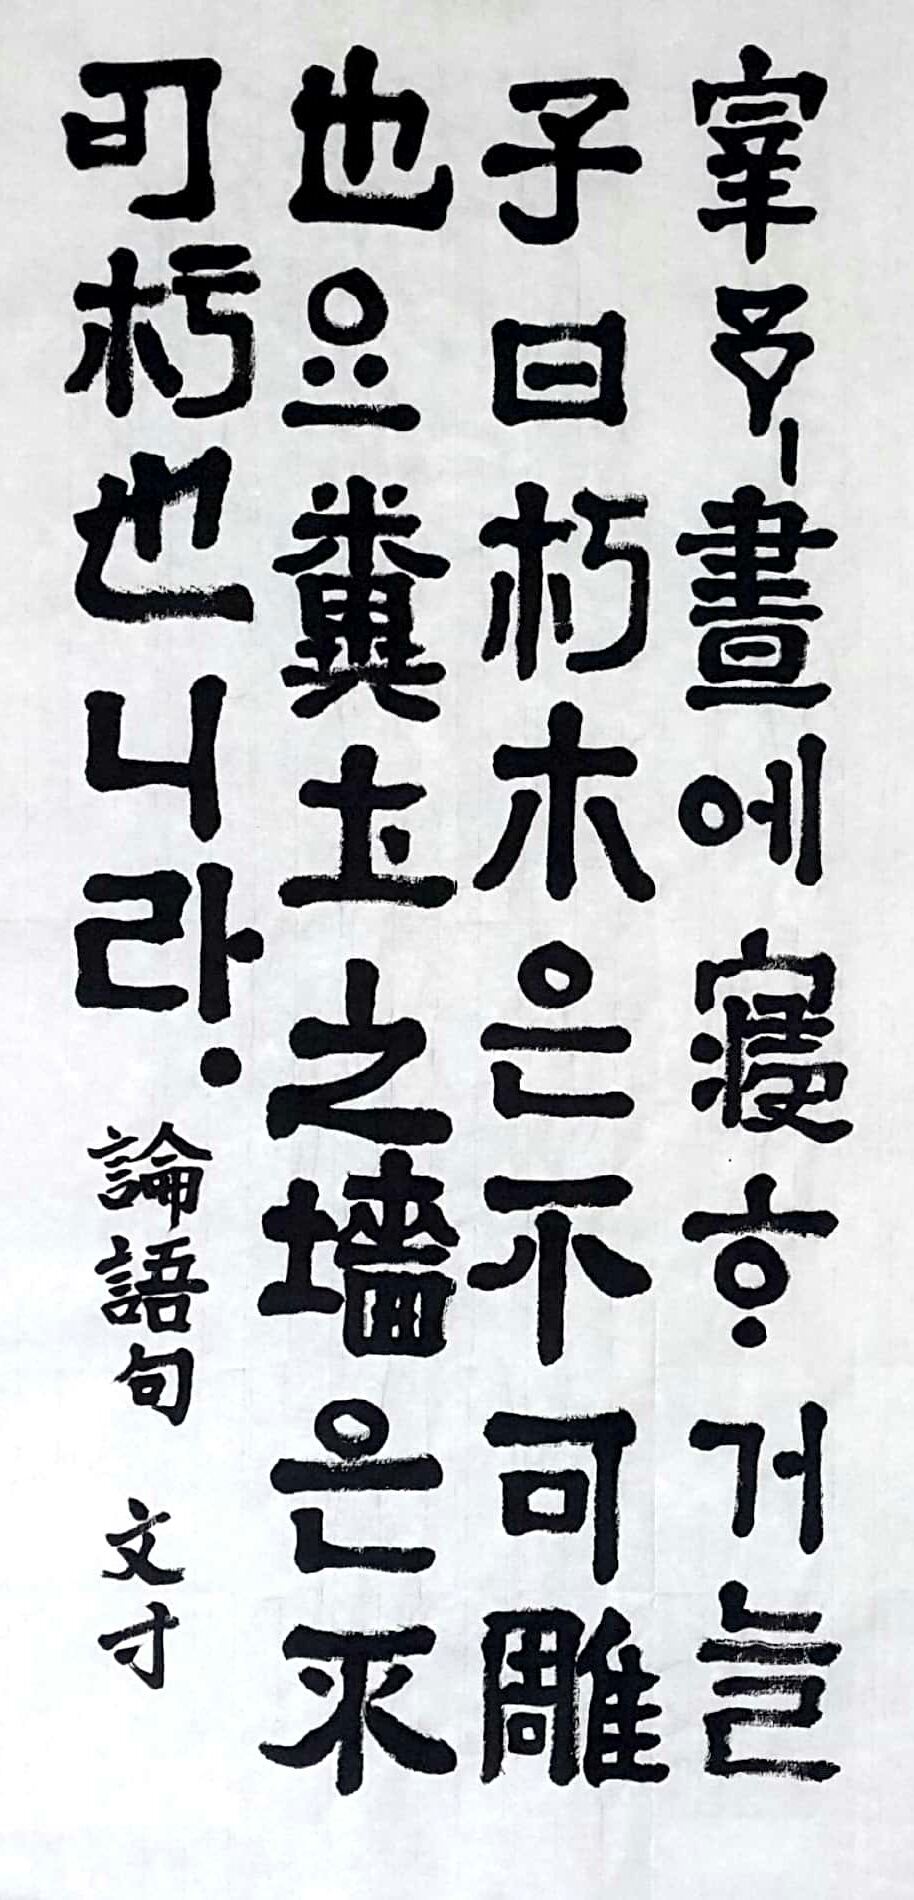 宰予ㅣ晝에寢ᄒᆞ거늘
子曰朽木은不可雕
也요糞土之墻은不
可杇也니라.
論語句 文才